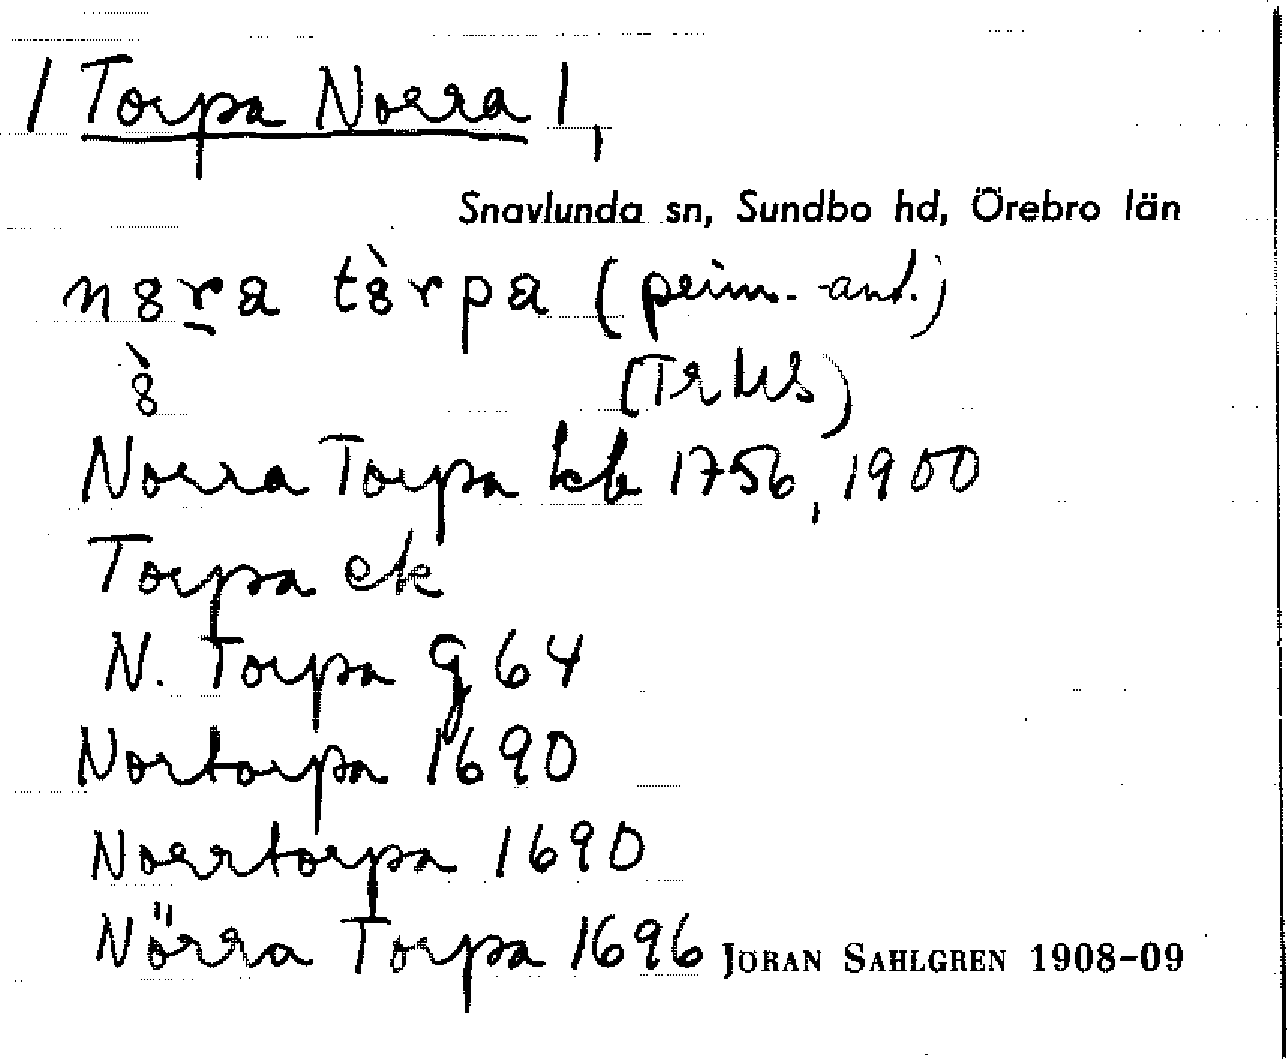 / Torpa Norra /,
Snavlunda sn, Sundbo hd, Örebro län
n8ra t8̀rpa
8̀
Norra Torpa kb 1756, 1900
Torpa ek
N. Torpa g 64
Nortorpa 1690
Norrtorpa 1690
Nörra Torpa 1696 JÖRAN SAHLGREN 1908–09